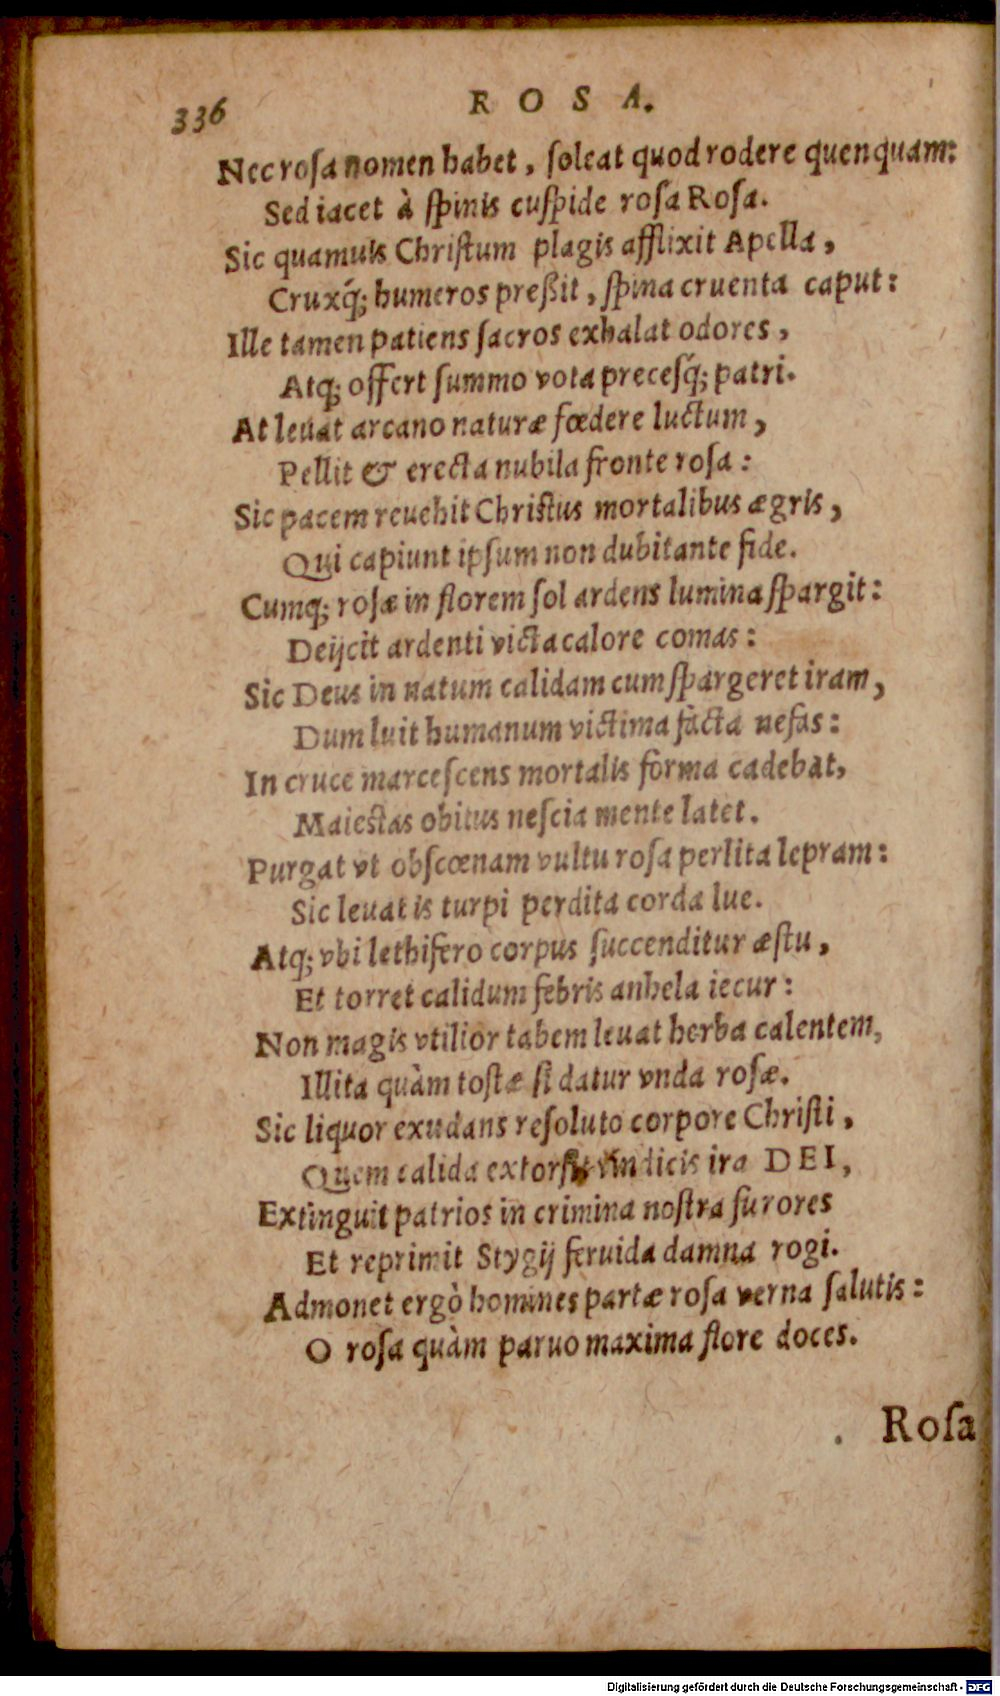 336 ROSA.
Nec rosa nomen habet, soleat quod rodere quenquam:
Sed iacet à spinis cuspide rosa Rosa.
Sic quamuis Christum plagis afflixit Apella,
Cruxq́; humeros preßit, spina cruenta caput:
Ille tamen patiens sacros exhalat odores,
Atq; offert summo vota precesq́; patri.
At leuat arcano naturæ fœdere luctum,
Pellit & erecta nubila fronte rosa:
Sic pacem reuehit Christus mortalibus ægris,
Qui capiunt ipsum non dubitante fide.
Cumq; rosæ in florem sol ardens lumina spargit:
Deijcit ardenti victa calore comas:
Sic Deus in natum calidam cum spargeret iram,
Dum luit humanum victima facta nefas:
In cruce marcescens mortalis forma cadebat,
Maiestas obitus nescia mente latet.
Purgat vt obscœnam vultu rosa perlita lepram:
Sic leuat is turpi perdita corda lue.
Atq; vbi lethifero corpus succenditur æstu,
Et torret calidum febris anhela iecur:
Non magis vtilior tabem leuat herba calentem,
Illita quàm tostæ si datur vnda rosæ.
Sic liquor exudans resoluto corpore Christi,
Quem calida extorsit vindicis ira DEI,
Extinguit patrios in crimina nostra furores
Et reprimit Stygij feruida damna rogi.
Admonet ergò homines partæ rosa verna salutis:
O rosa quàm paruo maxima flore doces.
Rosa
Digitalisierung gefördert durch die Deutsche Forschungsgemeinschaft - DFG